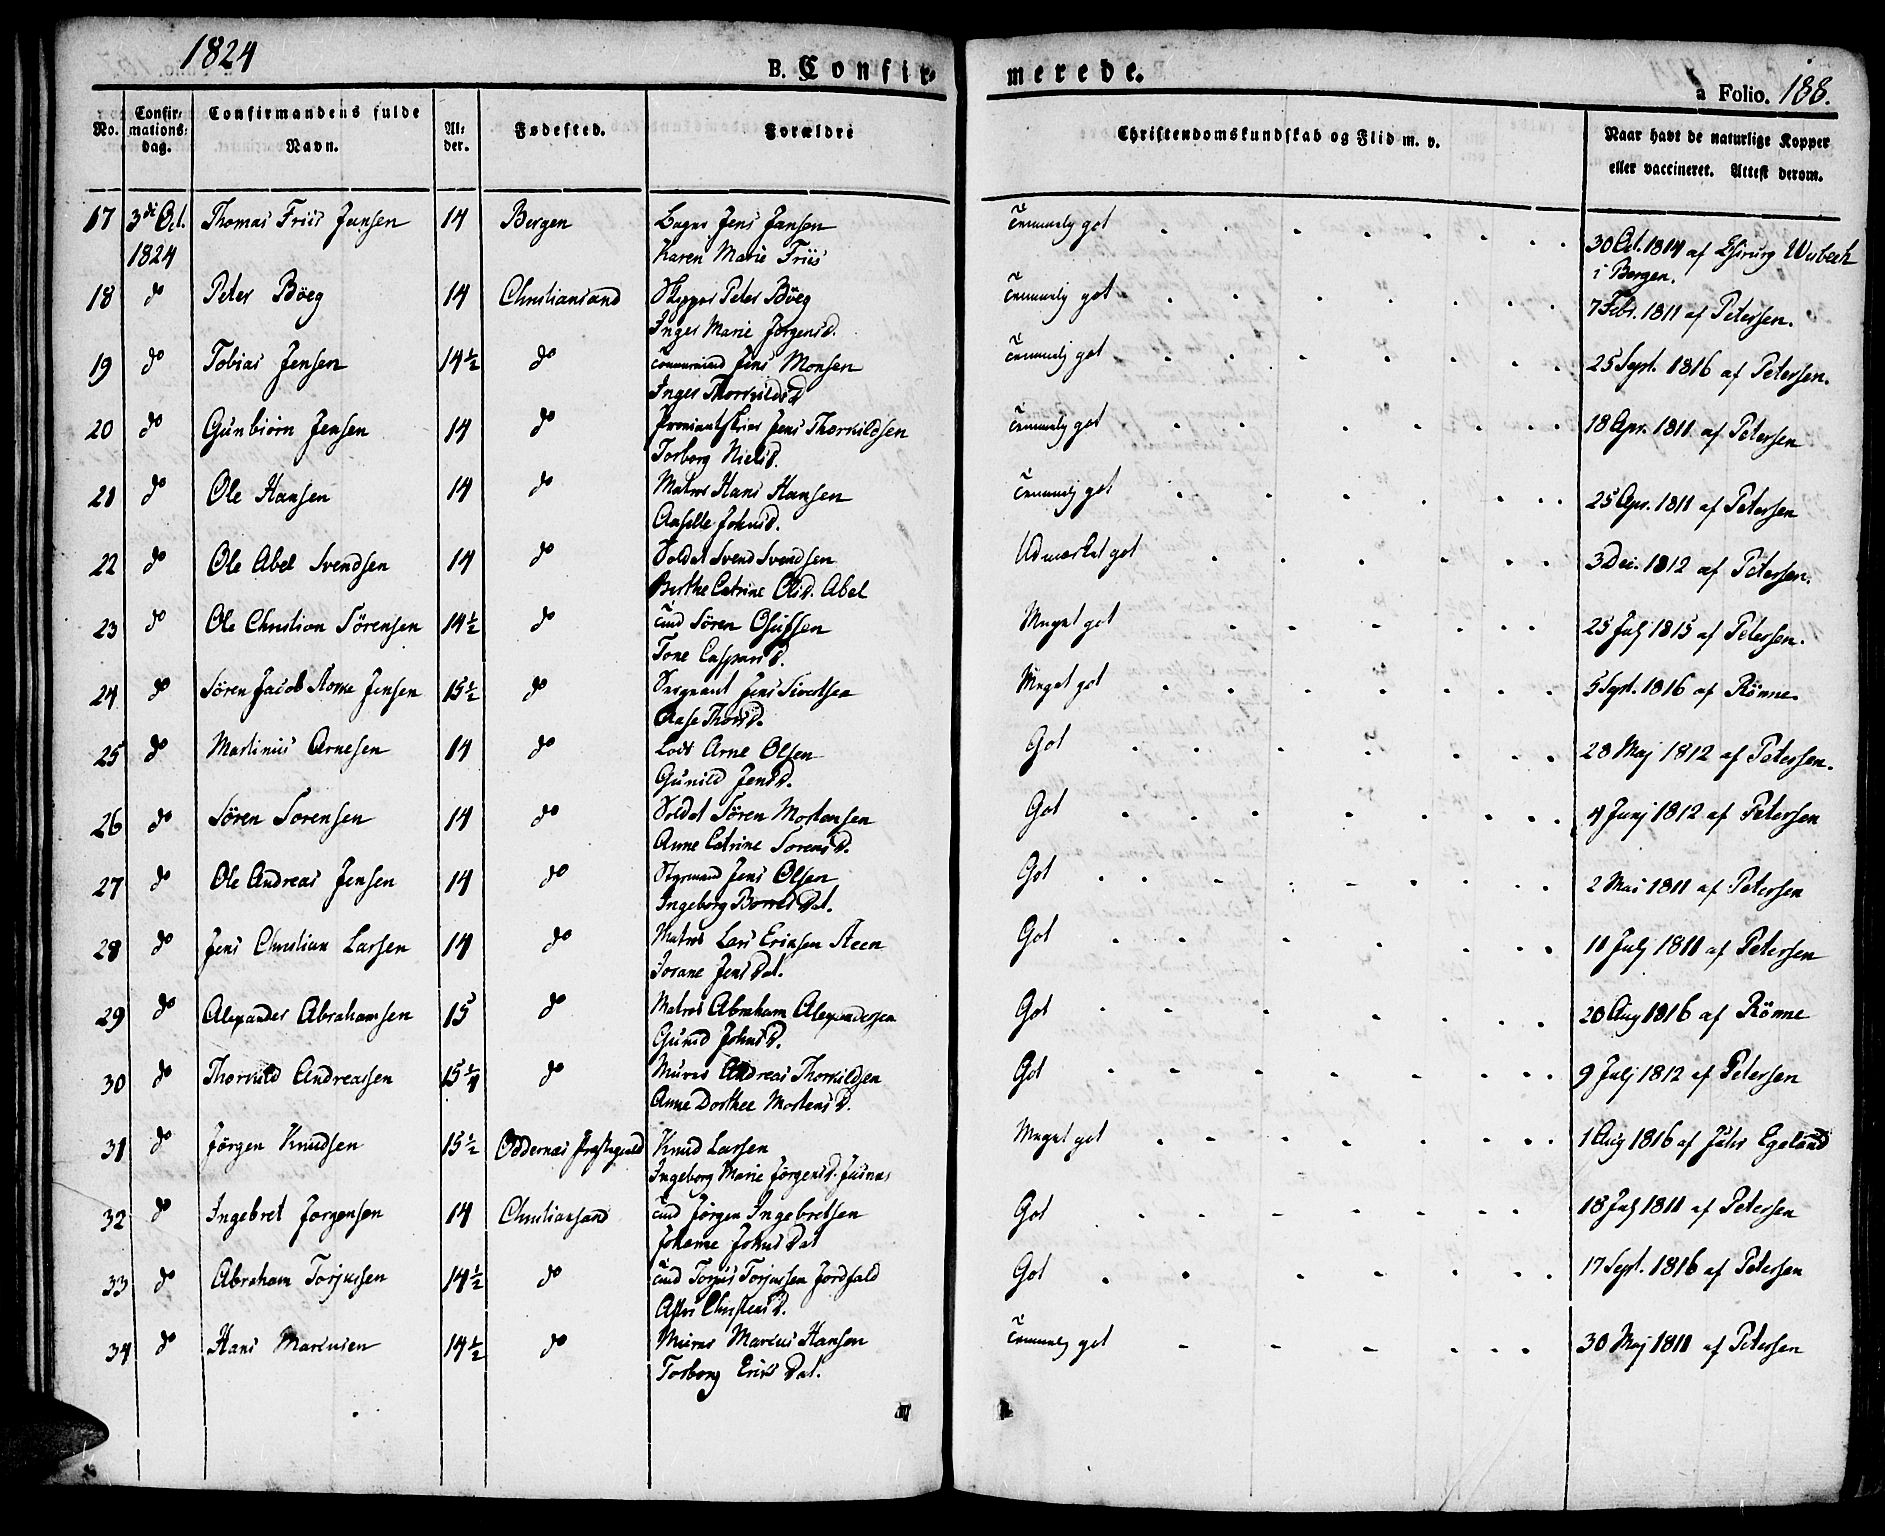 1824
B. Confir- merede.
a Folio. 188.
No. Confirmations-dag. Confirmandens fulde Navn. Alder. Fødested. Forældre Christendomskundskab og Flid m. v. Naar havt de naturlige Kopper eller vaccineret. Attest derom.
17 3di Oct. Thomas Friis Jansen 14 Bergen Jens Jansen Temmelig got 30 Oct. 1814 af Chirurg
1824 Karen Marie Friis i Bergen.
18 do Peter Böeg 14 Christiansand Skipper Peter Böeg Temmelig got 7 Febr. 1811 af Petersen.
Inger Marie JørgensD.
19 do Tobias Jensen 14½ do Jens Monsen Temmelig got 25 Sept. 1816 af Petersen.
Inger ThorkildsD
20 do Gunbiørn Jensen 14 do Jens Thorkildsen Temmelig got 18 Apr. 1811 af Petersen
Torborg NielsD.
21 do Ole Hansen 14 do Matros Hans Hansen Temmelig got 25 Apr. 1811 af Petersen
JohnsD.
22 do Ole Abel Svendsen 14 do Soldat Svend Svendsen Udmærket got 3 Dec. 1812 af Petersen.
Berthe Catrine OlsD. Abel
23 do Ole Christian Sörensen 14½ do Sören Meget got 25 Julj 1815 af Petersen.
Tone CasparsD.
24 do Sören Jacob Jensen 15½ do Sergeant Jens Sivertsen Meget got 5 Sept. 1816 af Rönne.
Aase ThorsD.
25 do Martinus Arnesen 14 do Lods Arne Olsen Got 28 Maj 1812 af Petersen.
Gunild JensD.
26 do Sören Sorensen 14 do Soldat Sören Mortensen Got 4 Junj 1812 af Petersen
Anne Catrine SorensD.
27 do Ole Andreas Jensen 14 do Styrmand Jens Olsen Got 2 Mai 1811 af Petersen
Ingeborg Dat.
28 do Jens Christian Larsen 14 do Matros Lars Ericksen Steen Got 11 Julj 1811 af Petersen
Jorane Jens Dat.
29 do Alexander Abrahamsen 15 do Matros Abraham Alexandersen Got 20 Aug 1816 af Rönne
Gunild JohnsD.
30 do Thorkild Andreassen 15¼ do Murer Andreas Thorkildsen Got 9 Julj 1812 af Petersen
Anne Dorthee MortensD.
31 do Jørgen Knudsen 15½ Oddernes Præstegield Knud Larsen Meget got 1 Aug 1816 af Egeland
Ingeborg Marie JørgensD.
32 do Ingebret Jørgensen 14 Christiansand Jørgen Ingebretsen Got 18 Julj 1811 af Petersen
Johanne Johns Dat
33 do Abraham Torjussen 14½ do Torjus Torjussen Jordfald Got 17 Sept. 1816 af Petersen
ChristensD.
34 do Hans Marcusen 14½ do Murer Marcus Hansen Temmelig got 30 Maj 1811 af Petersen
Torborg Eriks Dat.